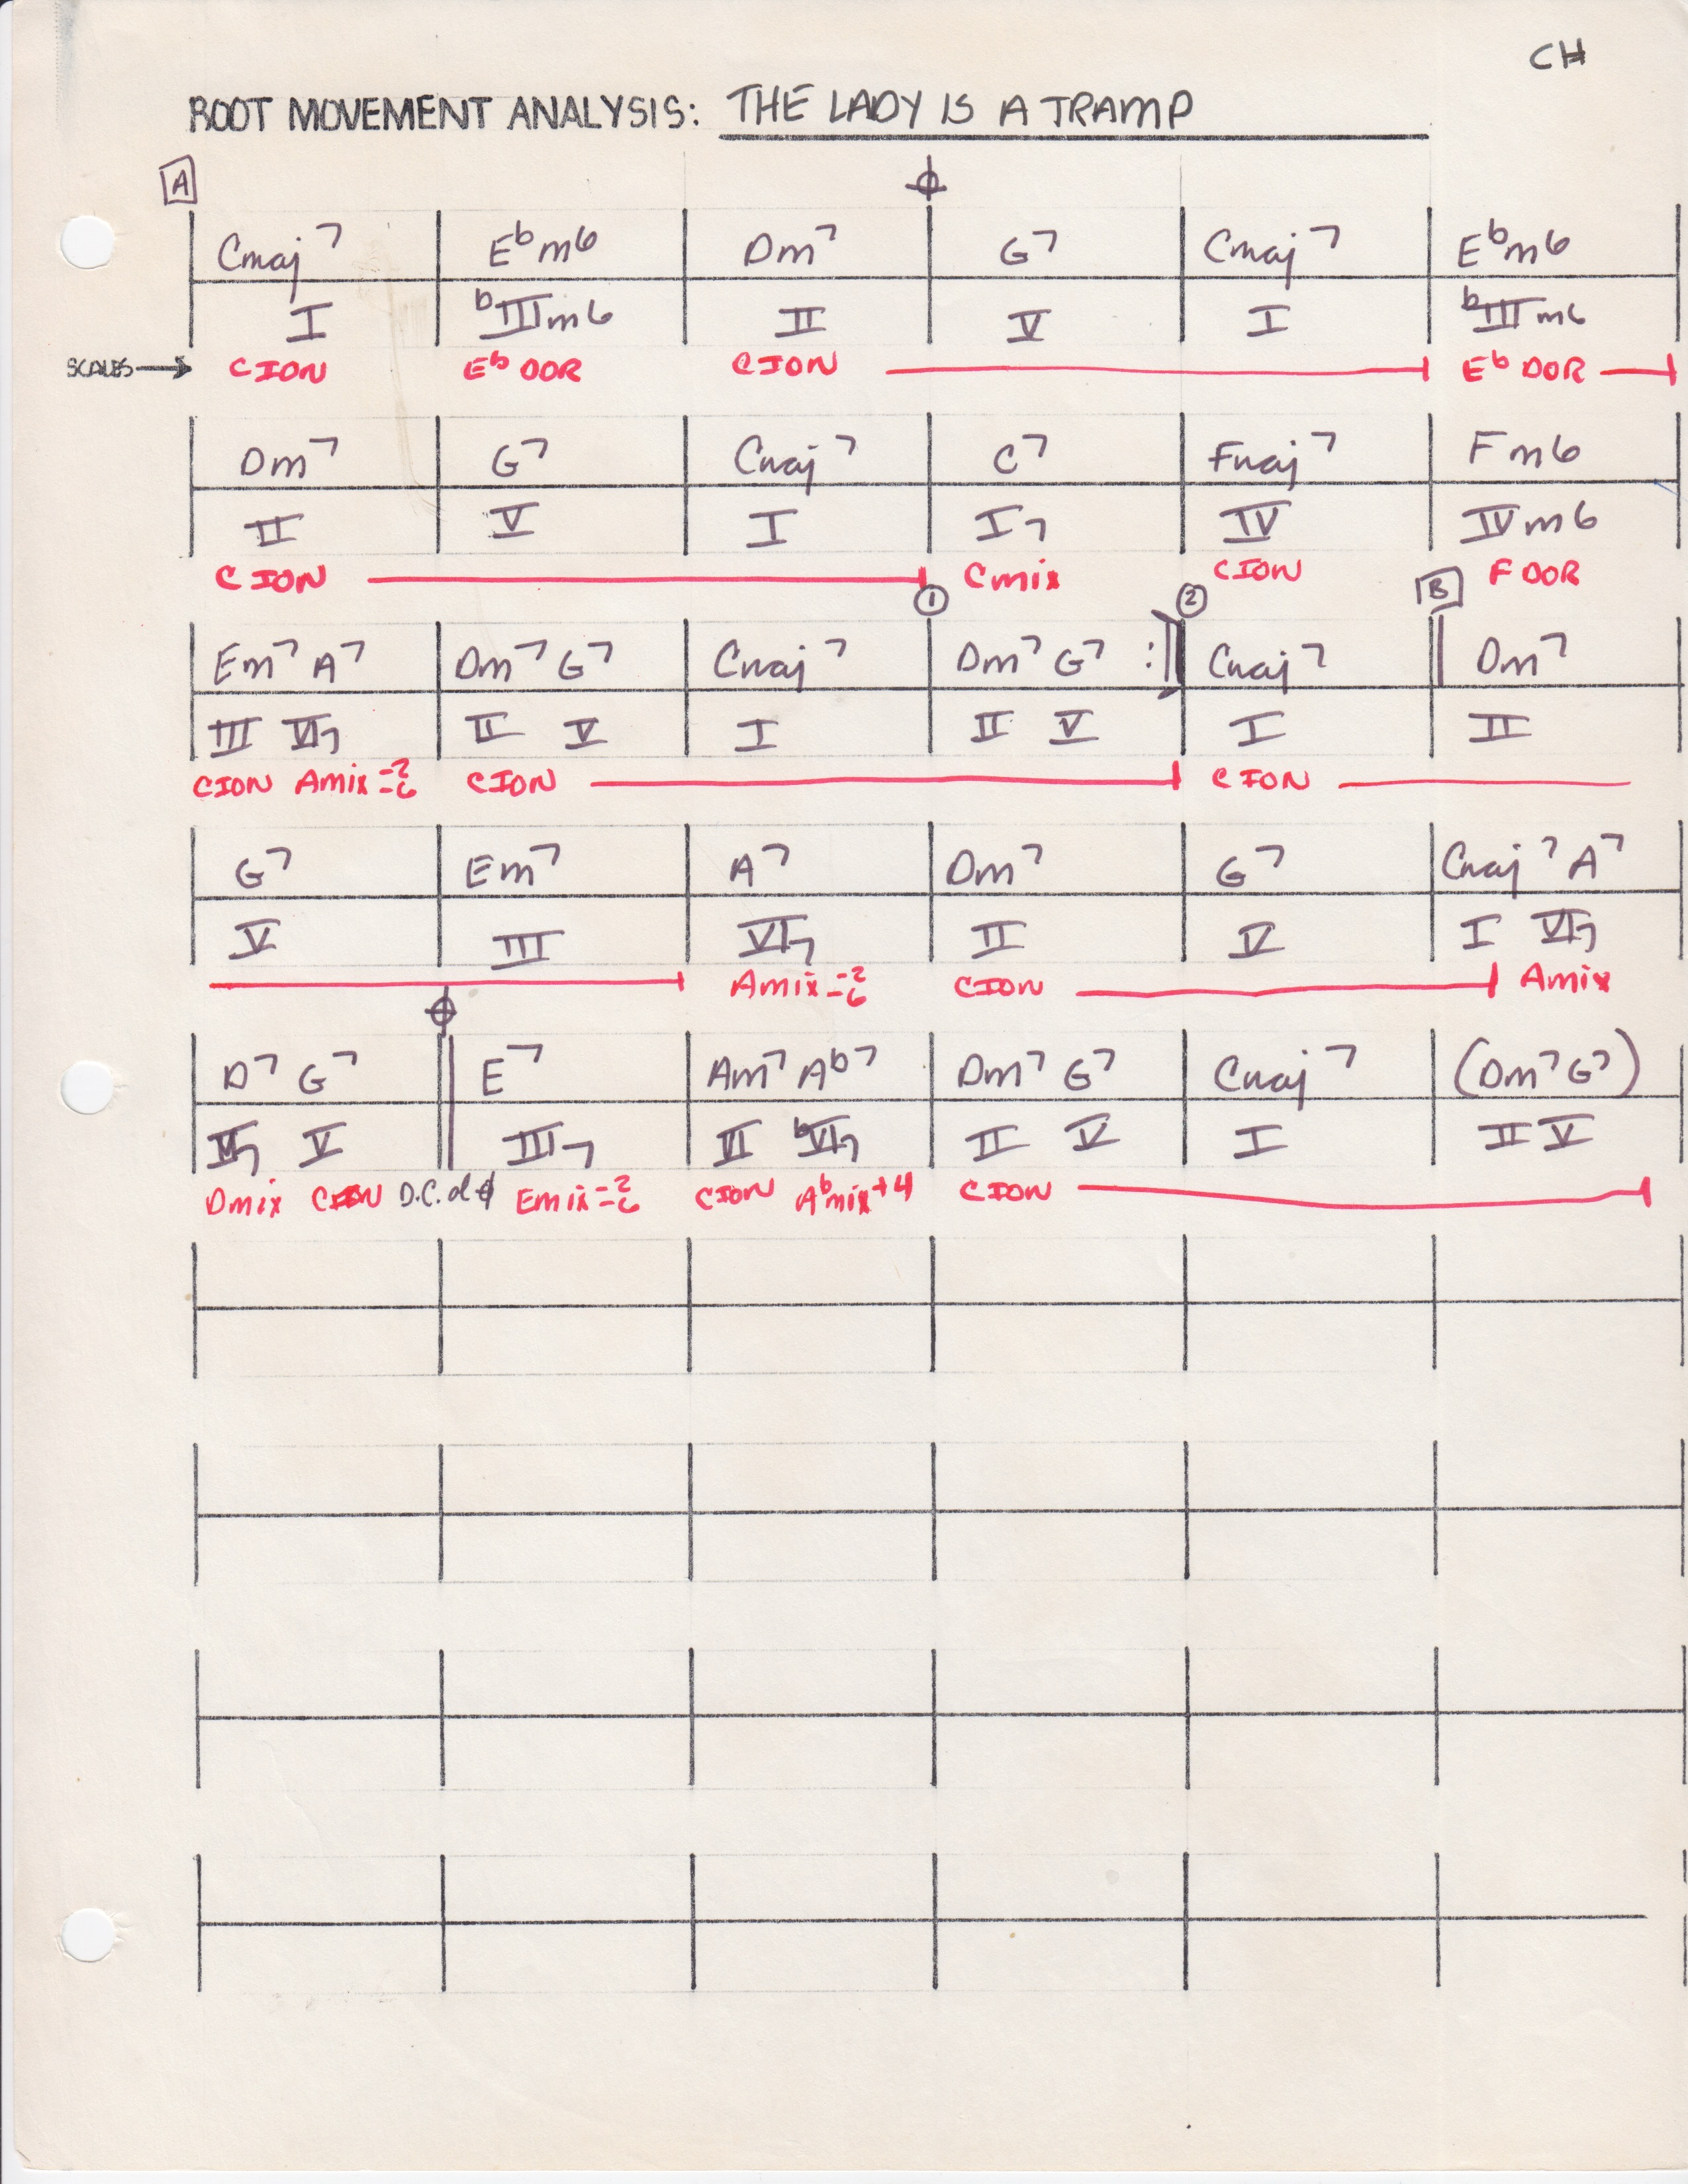 CH
ROOT MOVEMENT ANALYSIS: THE LADY IS A TRAMP
A
Cmaj7 Ebm6 Dm7 G7 Cmaj7 Ebm6
I bIIIm6 II V I bIIIm6
SCALES → C ION Eb DOR C ION Eb DOR
Dm7 G7 Cmaj7 C7 Fmaj7 Fm6
II V I I7 IV IVm6
C ION Cmix C ION F DOR
1 2 B
Em7 A7 Dm7 G7 Cmaj7 Dm7 G7 :|| Cmaj7 Dm7
III VI7 II V I II V I II
C ION Amix-2-6 C ION C ION
G7 Em7 A7 Dm7 G7 Cmaj7 A7
V III VI7 II V I VI7
Amix-2-6 C ION Amix
D7 G7 E7 Am7 Ab7 Dm7 G7 Cmaj7 (Dm7 G7)
II7 V III7 VI bVI7 II V I II V
Dmix C ION D.C. al Emix-2-6 C ION Abmix+4 C ION